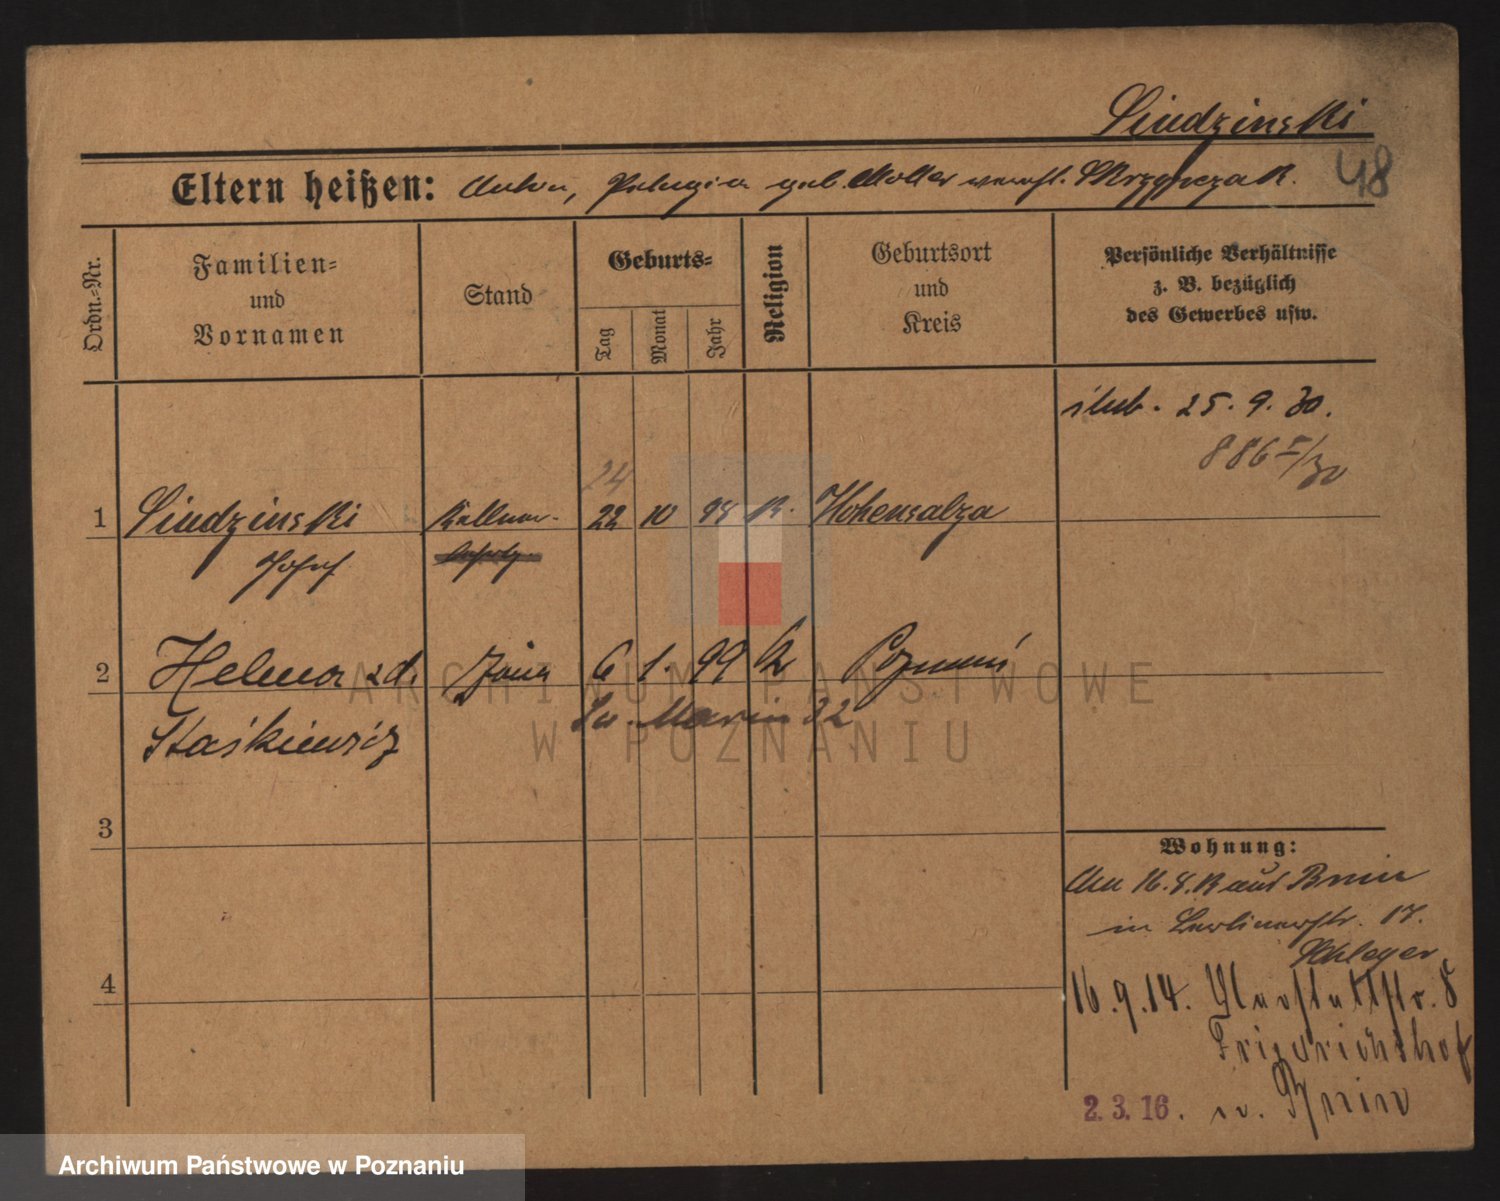 Siudzinski
48
Eltern heißen: Anton, Pelagia geb. Moller verst. Skrzypczak.
Ordn.-Nr.
Familien-
und
Vornamen
Stand
Geburts-
Tag
Monat
Jahr
Religion
Geburtsort
und
Kreis
Persönliche Verhältnisse
z. B. bezüglich
des Gewerbes usw.
ślub. 25. 9. 30.
886 I/30
24
1 Siudzinski Kellner. 22 10 98 K. Hohensalza
Josef
2 Helena zd. żona 6 1. 99 k Poznań
Św. Marcin 32
Staśkiewicz
3
4
Wohnung:
Am 16.8.13 aus Bnin
in Berlinerstr. 17.
16.9.14.
Friedrichshof
2.3.16. n. Bnin
ARCHIWUM PAŃSTWOWE
W POZNANIU
Archiwum Państwowe w Poznaniu